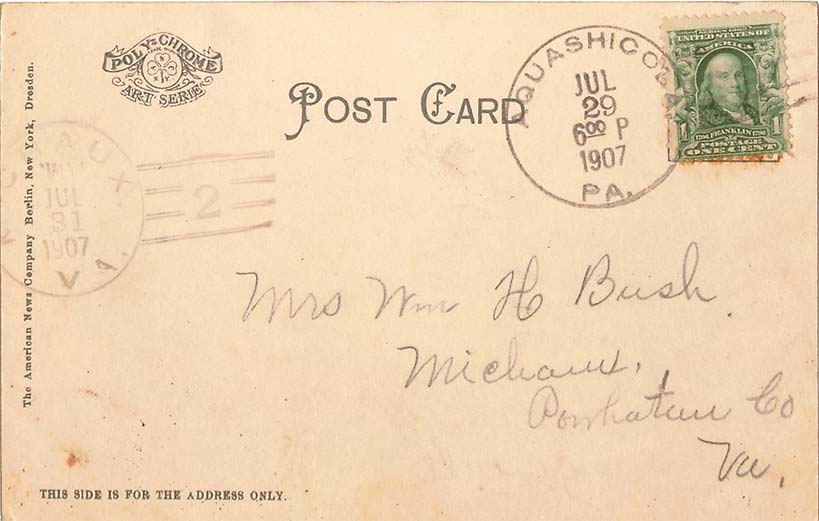 POLY-CHROME
TRADE MARK
ART SERIE
POST CARD
AQUASHICOLA
JUL
29
6 00 P
1907
PA.
SERIES 1902
UNITED STATES OF
AMERICA
1706 FRANKLIN 1790
POSTAGE
1 ONE CENT 1
AUX.
JUL
31
1907
VA.
2
The American News Company Berlin, New York, Dresden.
Mrs Wm H Bush.
Michaux,
Powhatan Co
Va,
THIS SIDE IS FOR THE ADDRESS ONLY.